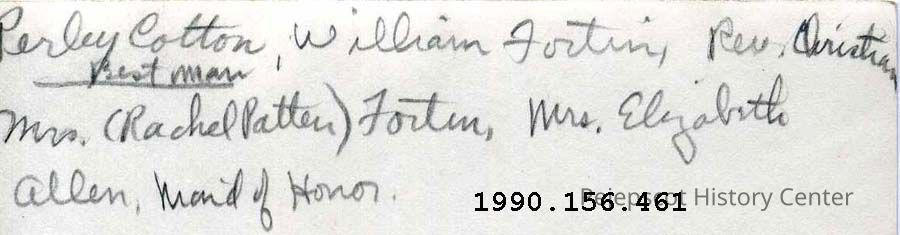 Perley Cotton, William Fortin, Rev. Christian
Best man
Mrs. (Rachel Patten) Fortin, Mrs. Elizabeth
Allen, Maid of Honor.
1990.156.461
Pejepscot History Center